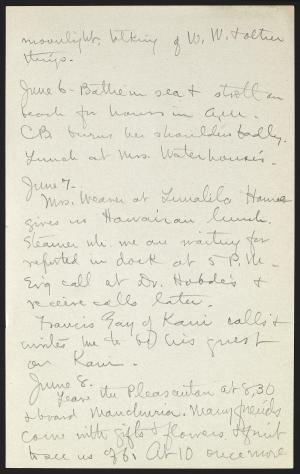 moonlight, talking of W. W. & other
things.
June 6 - Bathe in sea & stroll on
beach for hours in a.m.
CB burns her shoulders badly.
Lunch at Mrs. Waterhouse's.
June 7.
Mrs. Weaver at Lunalilo Home
gives us Hawaiian lunch.
Steamer wh. we are waiting for
reported in dock at 5 P.M.
Eve call at Dr. Hobdy's &
receive calls later.
Francis Gay of Kaui calls &
invites me to be his guest
on Kaui.
June 8.
Leave the Pleasanton at 8,30
& board Manchuria. Many friends
come with gifts & flowers, & fruit
to see us off. At 10 once more